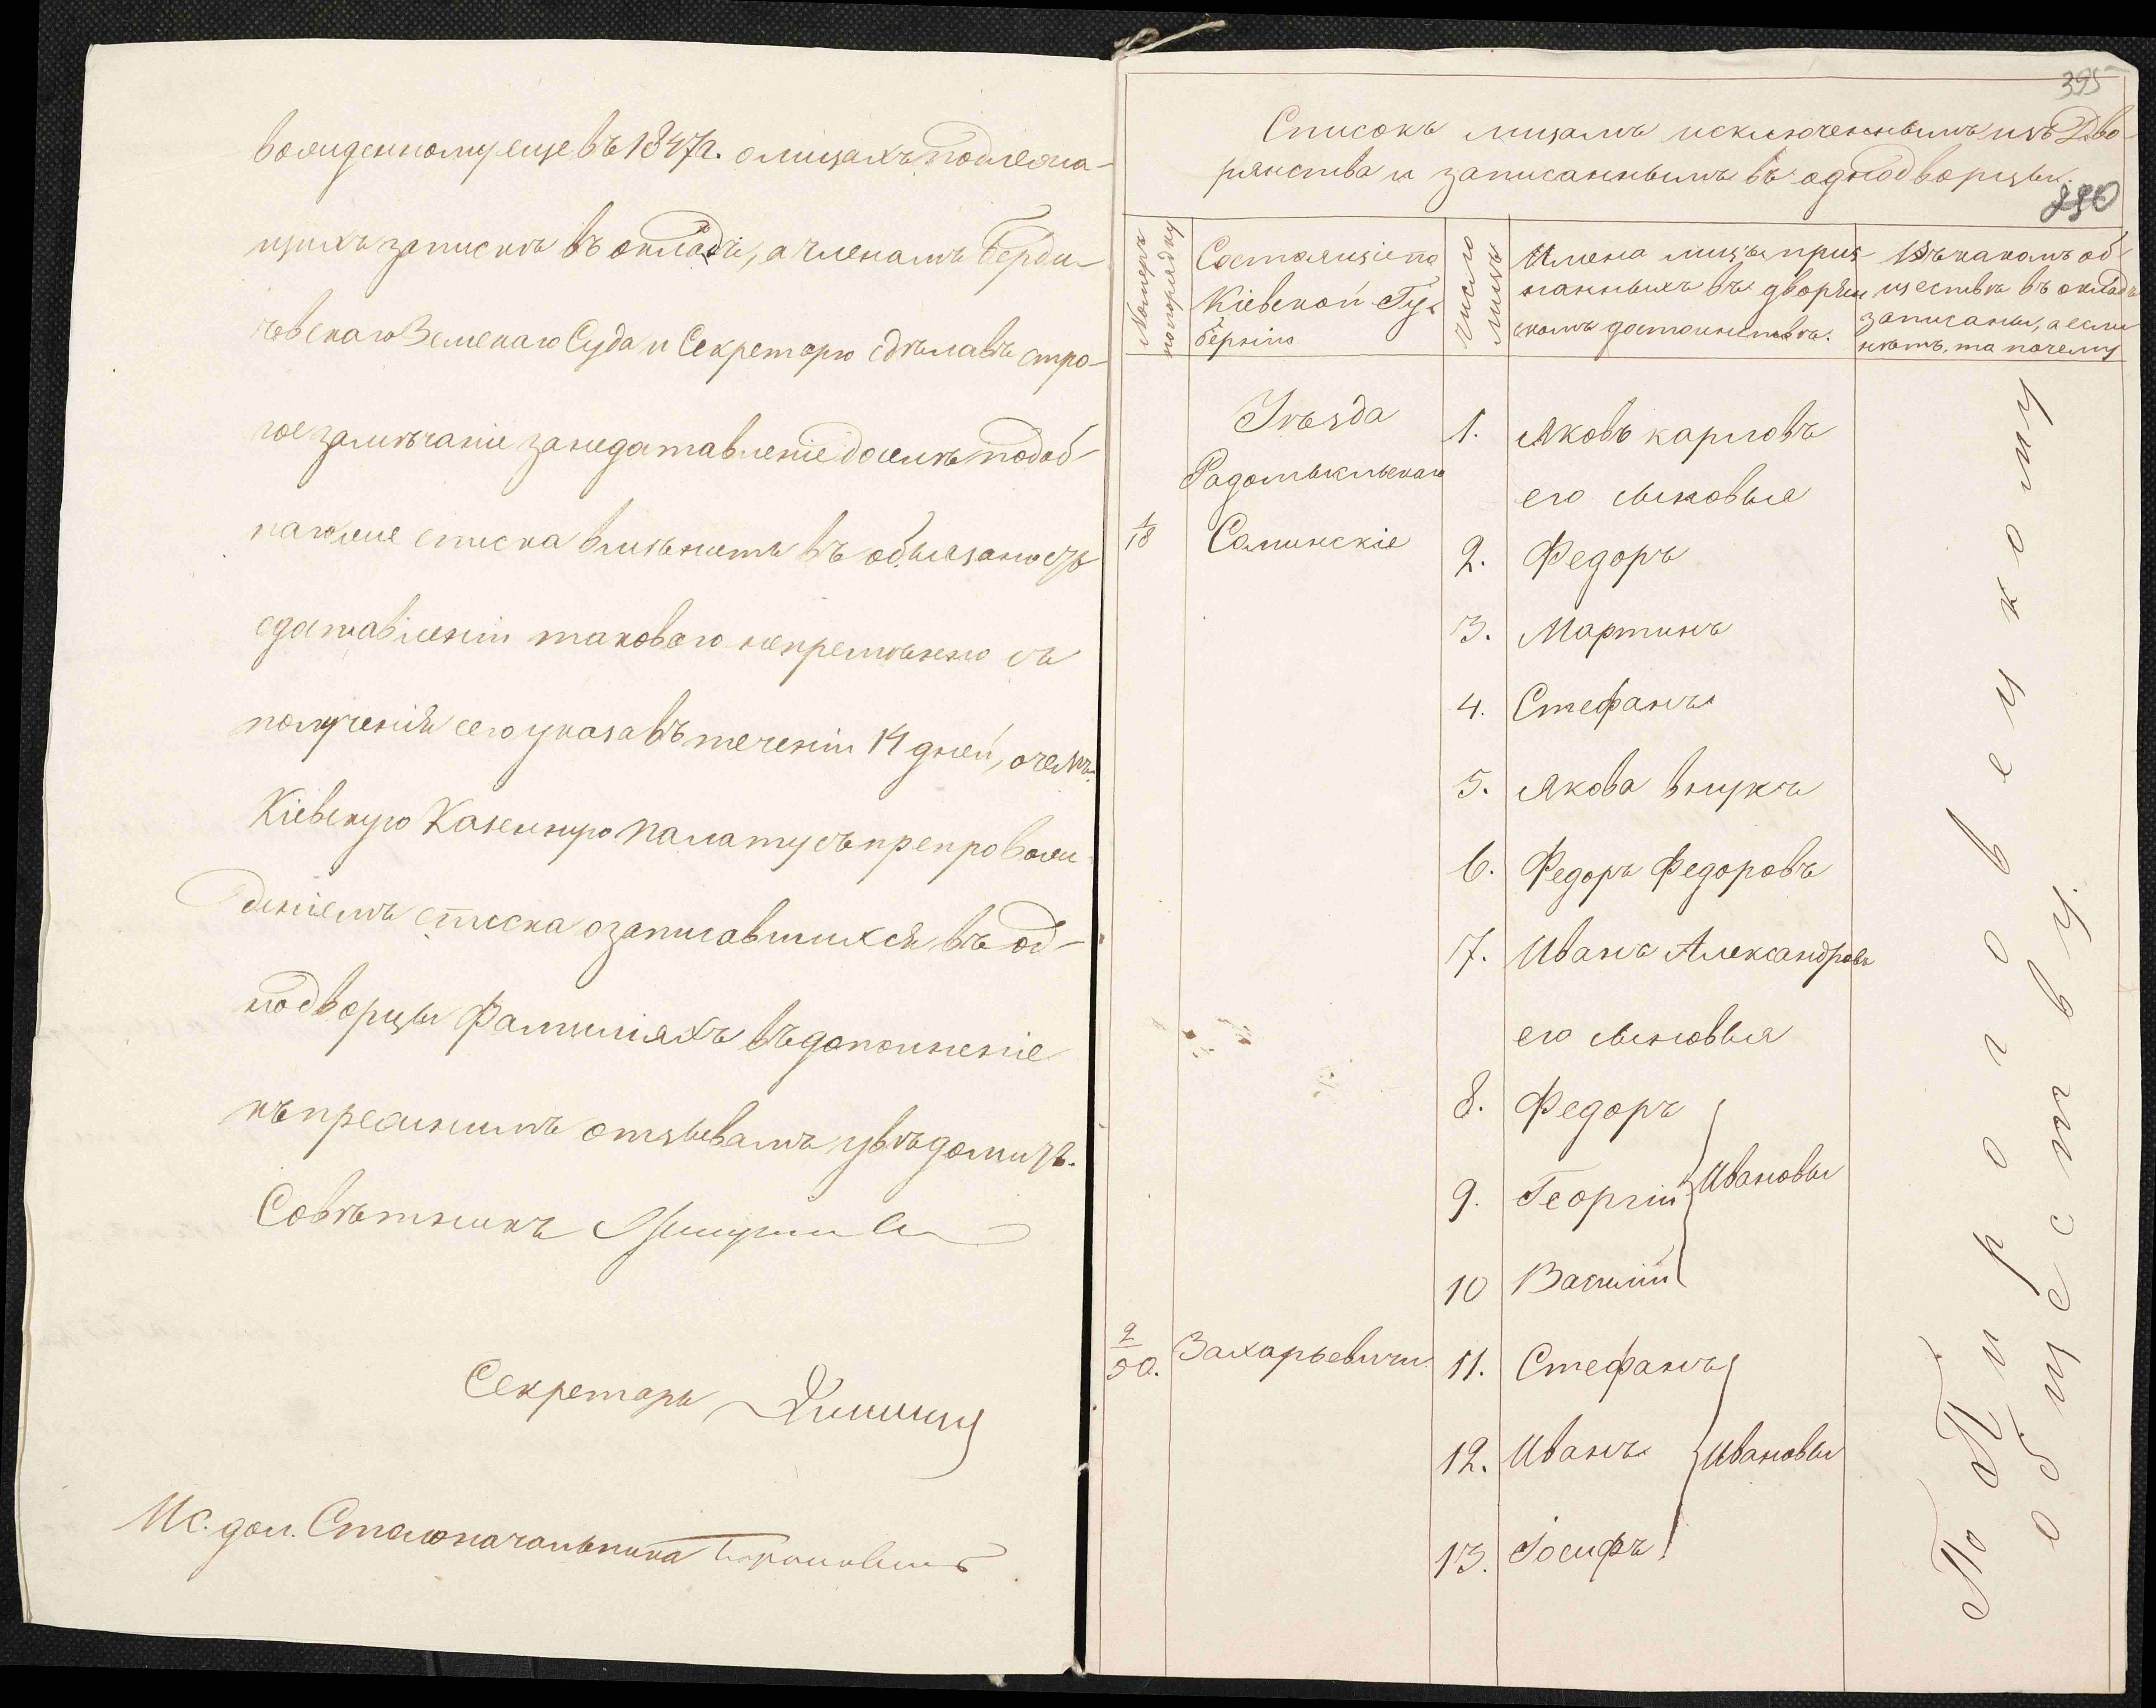 вожденному еще въ 1847 г. о лицахъ подлежа-
щихъ запискѣ въ окладѣ, а членамъ Берди-
чевскаго Земскаго Суда и Секретарю сдѣлавъ стро-
гое замѣчаніе за недоставленіе досемѣ подоб-
наго же списка вмѣнить въ обязаность
о доставленіи таковаго непремѣнно съ
полученія сего указа въ теченіи 14 дней, о чемъ
Кіевскую Казенную Палату съ препровож-
деніемъ списка о записавшихся въ од-
нодворцы Фамиліяхъ въ дополненіе
къ прежнимъ отзывамъ увѣдомить.
Совѣтникъ
Секретарь
Ис. дол. Столоначальника
395
Списокъ лицамъ исключеннымъ изъ Дво-
рянства и записаннымъ въ однодворцы.
290
Номеръ по порядку
Состоящіе по Кіевской Гу-берніи
число лицъ
Имена лицъ приз-нанныхъ въ дворян-скомъ достоинствѣ.
Въ какомъ об-ществѣ въ окладъ записаны, а если нѣтъ, то почему
Уѣзда
Радомысльскаго
1. Яковъ Карловъ
его сыновья
1/18 Салинскіе 2. Федоръ
3. Мартинъ
4. Стефанъ
5. Якова внукъ
6. Федоръ Федоровъ
7. Иванъ Александровъ
его сыновья
8. Федоръ
9. Георгій Ивановы
10 Василій
2/50. Захарьевичи 11. Стефанъ
12. Иванъ Ивановы
13. Іосифъ
По Пироговецкому
обществу.